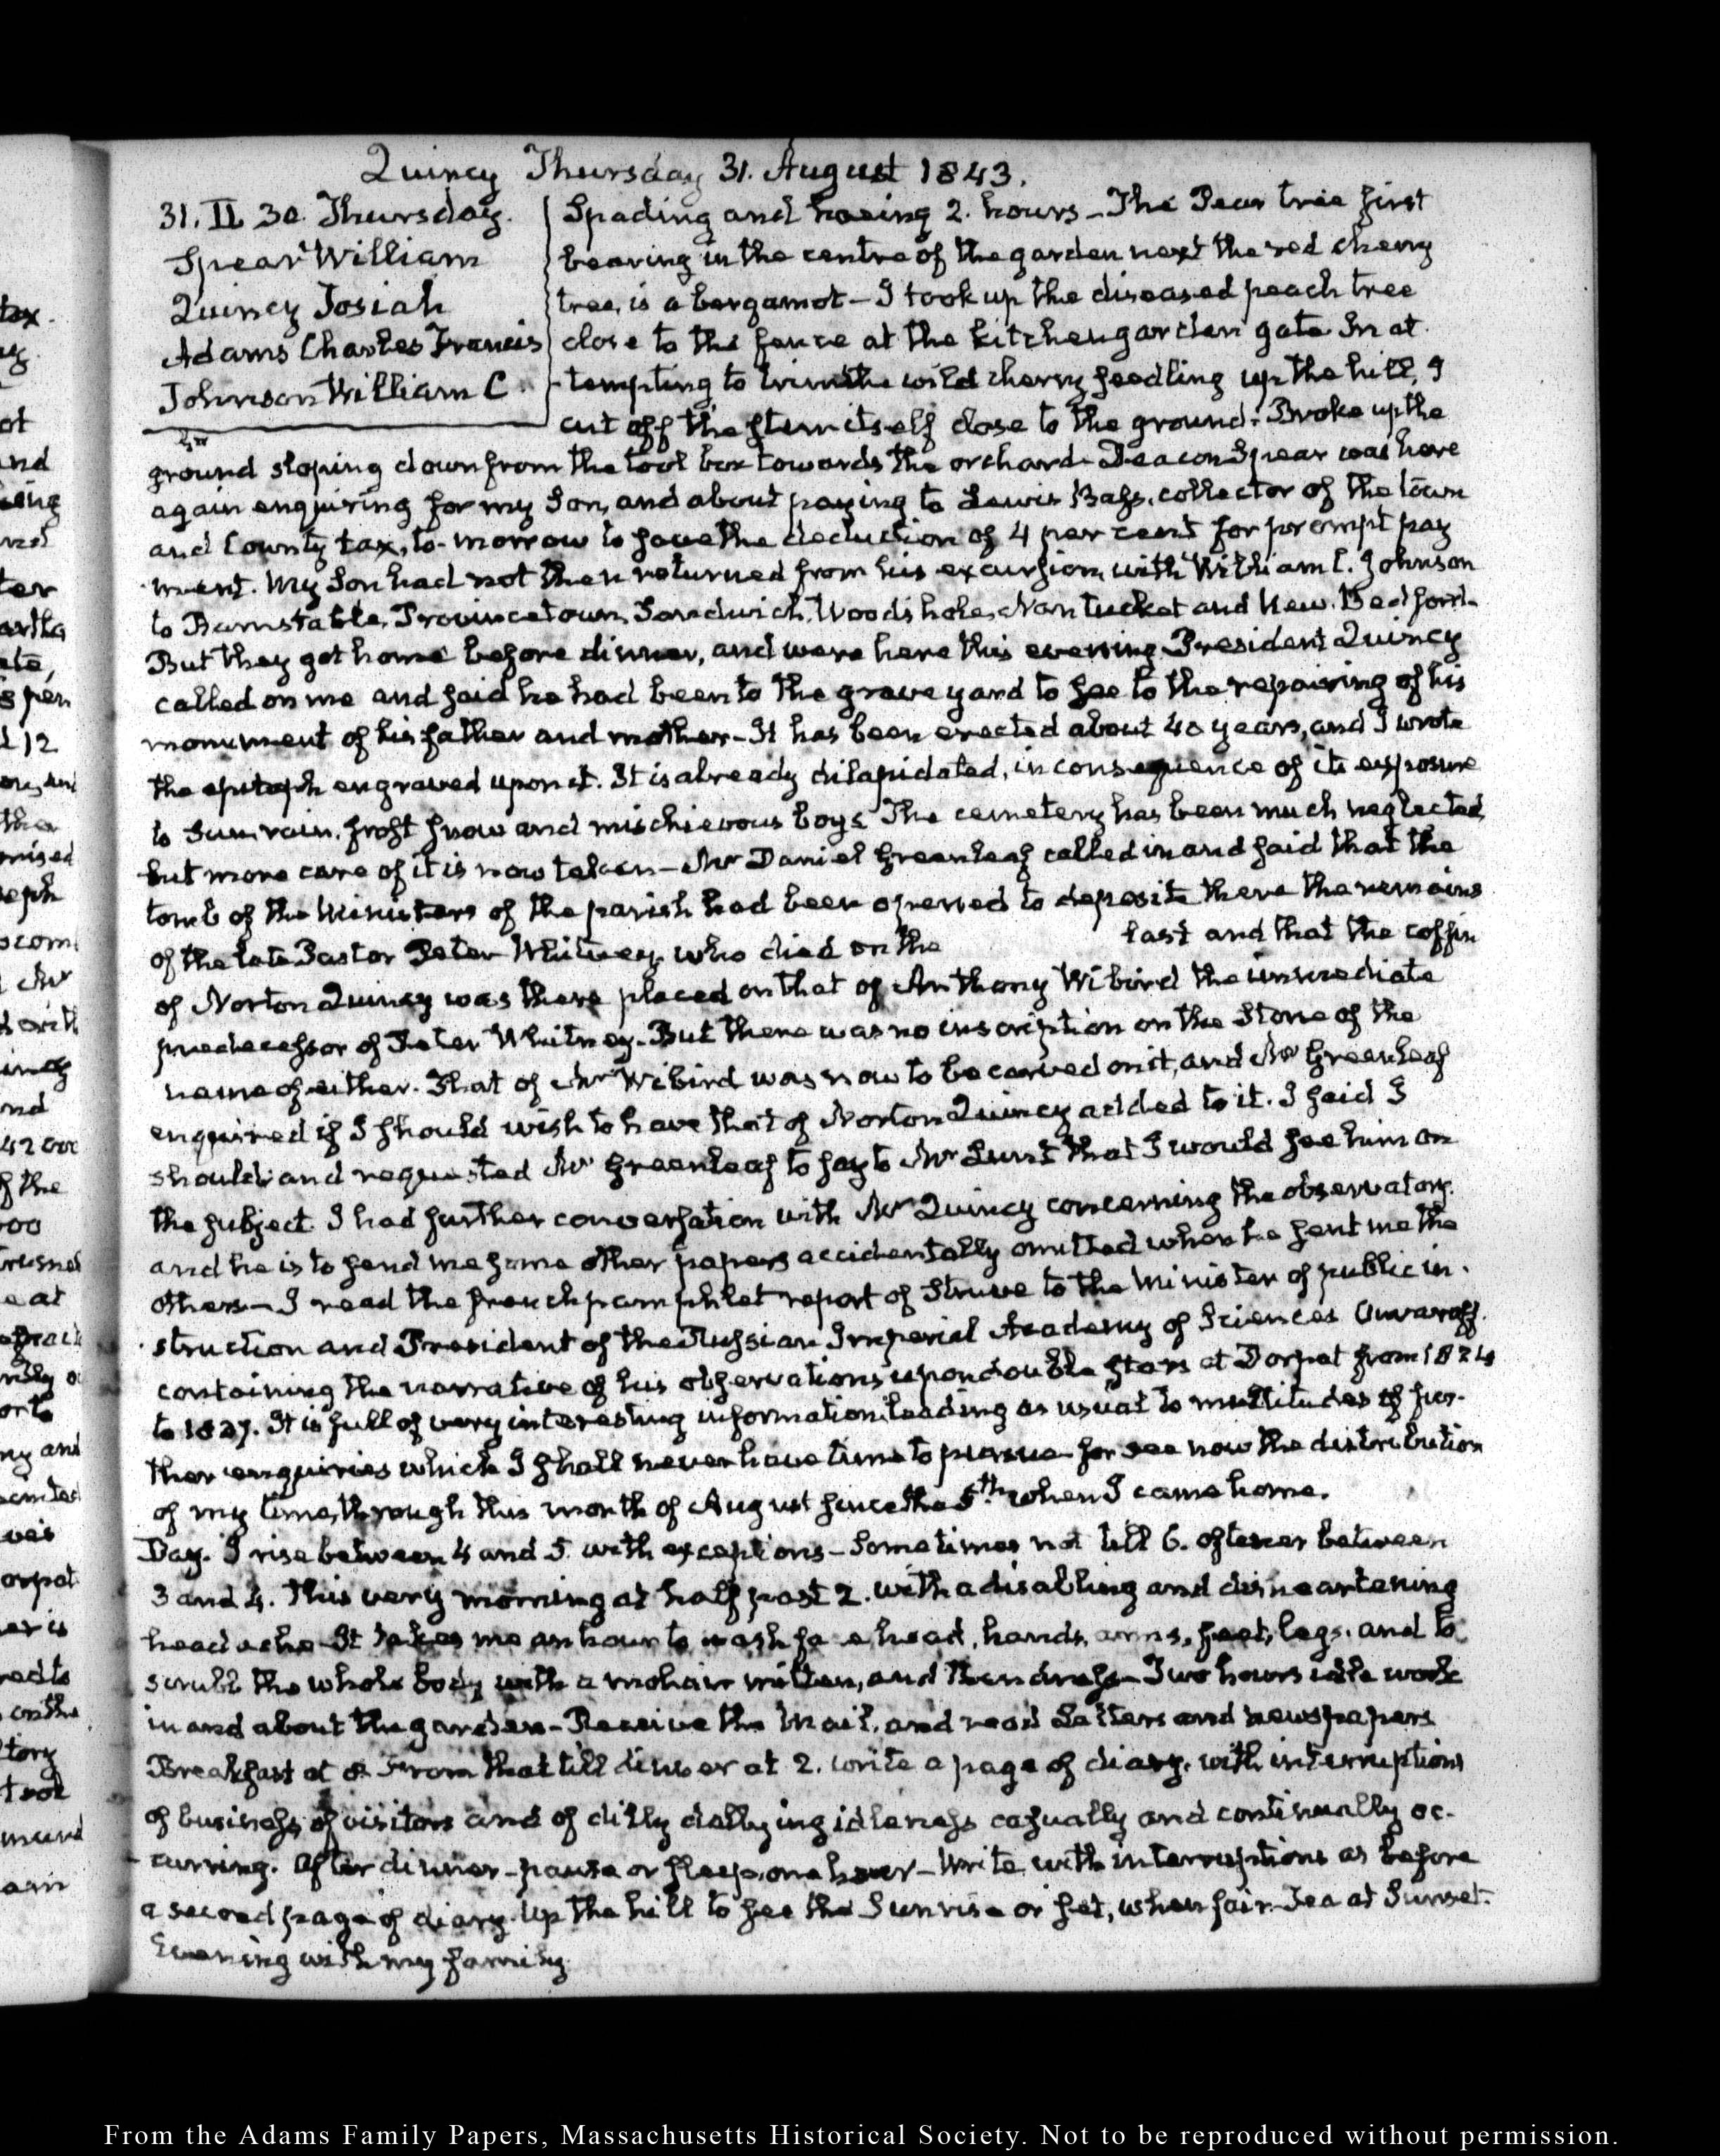 Quincy Thursday 31. August 1843.
31. II 30. Thursday.
Spear William
Quincy Josiah
Adams Charles Francis
Johnson William C.
Spading and hoeing 2. hours – The Pear tree first
bearing in the centre of the garden next the red cherry
tree, is a bergamot – I took up the diseased peach tree
close to the fence at the kitchen garden gate. In at
-tempting to trim the wild cherry seedling up the hill, I
cut off the stem itself close to the ground. Broke up the
ground sloping down from the tool box towards the orchard – Deacon Spear was here
again enquiring for my Son, and about paying to Lewis Bass, collector of the town
and County tax, to-morrow to save the deduction of 4 per cent for prompt pay
ment. My Son had not then returned from his excursion, with William C. Johnson
to Barnstable, Provincetown, Sandwich, Woods hole, Nantucket and New-Bedford –
But they got home before dinner, and were here this evening. President Quincy
called on me and said he had been to the grave yard to see to the repairing of his
monument of his father and mother – It has been erected about 40 years, and I wrote
the epitaph engraved upon it. It is already dilapidated, in consequence of its exposure
to Sun, rain, frost snow and mischievous boys. The cemetery has been much neglected,
but more care of it is now taken – Mr Daniel Greenleaf called in and said that the
tomb of the Ministers of the parish had been opened to deposite there the remains
of the late Pastor Peter Whitney, who died on the last and that the coffin
of Norton Quincy was there placed on that of Anthony Wibird the immediate
predecessor of Peter Whitney. But there was no inscription on the Stone of the
name of either. That of Mr Wibird was now to be carved on it, and Mr Greenleaf
enquired if I should wish to have that of Norton Quincy added to it. I said I
should; and requested Mr Greenleaf to say to Mr Lunt that I would see him on
the subject. I had further conversation with Mr Quincy concerning the observatory.
and he is to send me some other papers accidentally omitted when he sent me the
others – I read the french pamphlet report of Struve to the Minister of public in-
struction and President of the Russian Imperial Academy of Sciences Ouvaroff.
containing the narrative of his observations upon double stars at Dorpat from 1824
to 1827. It is full of very interesting information, leading as usual to multitudes of fur-
ther enquiries which I shall never have time to pursue – for see now the distribution
of my time, through this month of August since the 5th when I came home.
Day. I rise between 4 and 5 with exceptions – Sometimes not till 6. oftener between
3 and 4. This very morning at half past 2. with a disabling and disheartening
head ache – It takes me an hour to wash face, head, hands, arms, feet, legs. and to
scrubb the whole body with a mohair mitten, and then dress – Two hours work
in and about the garden – Receive the Mail, and read Letters and newspapers
Breakfast at 8. From that till dinner at 2. write a page of diary, with interruptions
of business, of visitors and of dilly dallying idleness casually and continually oc-
-curring. After dinner – pause or sleep, one hour – Write, with interruptions as before
a second page of diary. Up the hill to see the Sun rise or set, when fair – Tea at Sunset.
Evening with my family
From the Adams Family Papers, Massachusetts Historical Society. Not to be reproduced without permission.